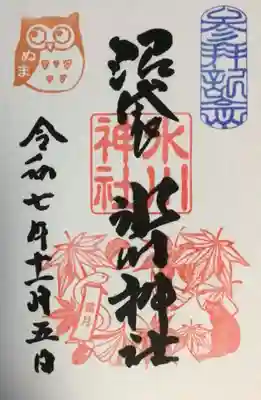 参拝記念
沼袋
氷川神社
氷川
神社
令和七年十一月五日
ぬま
霜月